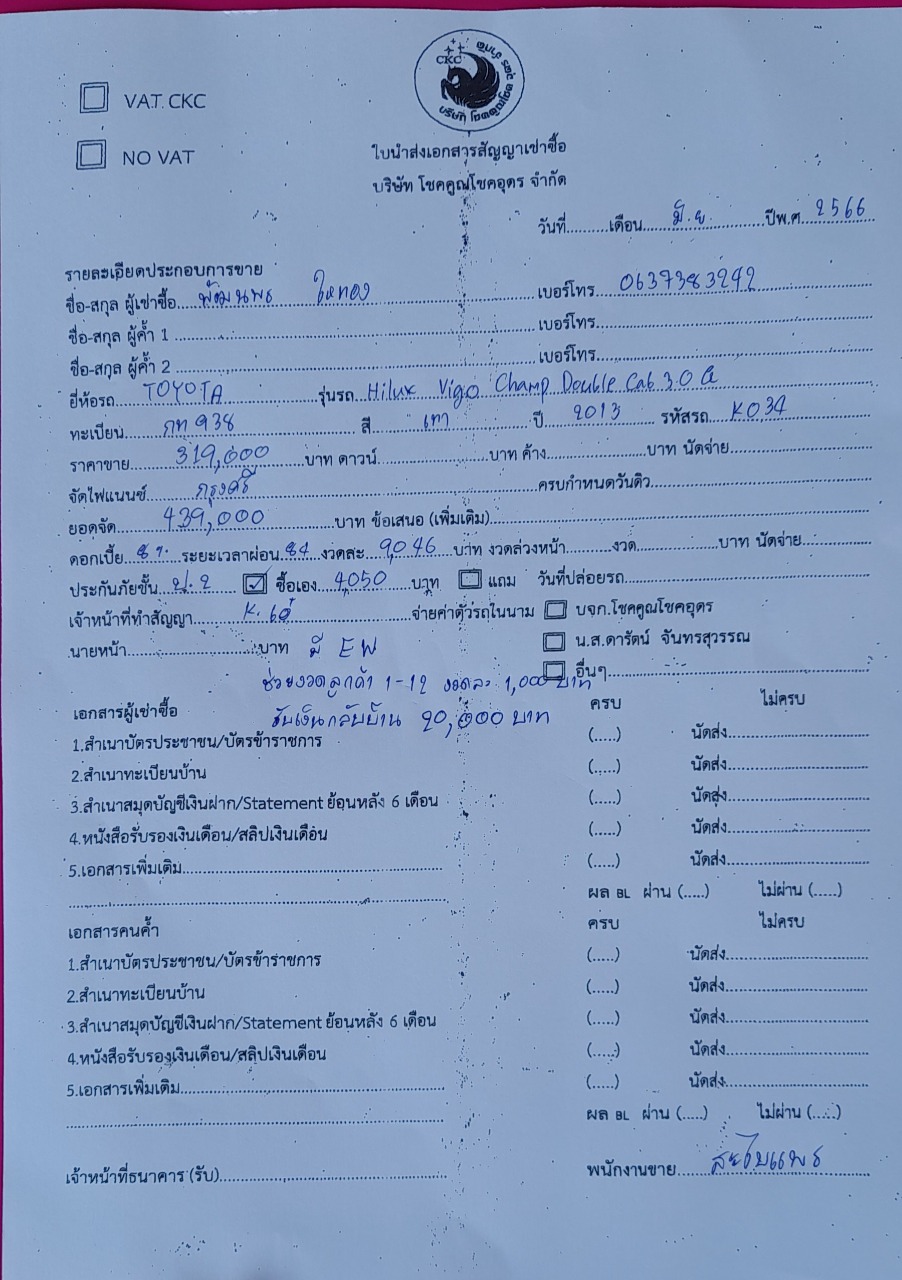 CKC
บริษัท โชคคูณโชคอุดร จำกัด
VAT CKC
NO VAT
ใบนำส่งเอกสารสัญญาเช่าซื้อ
บริษัท โชคคูณโชคอุดร จำกัด
วันที่..........เดือน.....มิ.ย.....ปีพ.ศ 2566
รายละเอียดประกอบการขาย
ชื่อ-สกุล ผู้เช่าซื้อ..........เบอร์โทร...0637383292
ชื่อ-สกุล ผู้ค้ำ 1..........เบอร์โทร..........
ชื่อ-สกุล ผู้ค้ำ 2..........เบอร์โทร..........
ยี่ห้อรถ TOYOTA รุ่นรถ Hilux Vigo Champ Double Cab 3.0 G
ทะเบียน กท 938 สี เทา ปี 2013 รหัสรถ K034
ราคาขาย 319,000 บาท ดาวน์..........บาท ค้าง..........บาท นัดจ่าย..........
จัดไฟแนนซ์ กรุงศรี ครบกำหนดวันดิว..........
ยอดจัด 439,000 บาท ข้อเสนอ (เพิ่มเติม)..........
ดอกเบี้ย 8% ระยะเวลาผ่อน 84 งวดละ 9,046 บาท งวดล่วงหน้า..........งวด..........บาท นัดจ่าย..........
ประกันภัยชั้น ป.2 ☑ ซื้อเอง 4,050 บาท แถม วันที่ปล่อยรถ..........
เจ้าหน้าที่ทำสัญญา K. จ่ายค่าตัวรถในนาม บจก.โชคคูณโชคอุดร
นายหน้า..........บาท มี EW น.ส.ดารัตน์ จันทรสุวรรณ
อื่นๆ..........
ช่วยงวดลูกค้า 1-12 งวดละ 1,000 บาท
รับเงินกลับบ้าน 20,000 บาท
เอกสารผู้เช่าซื้อ ครบ ไม่ครบ
1.สำเนาบัตรประชาชน/บัตรข้าราชการ (.....) นัดส่ง..........
2.สำเนาทะเบียนบ้าน (.....) นัดส่ง..........
3.สำเนาสมุดบัญชีเงินฝาก/Statement ย้อนหลัง 6 เดือน (.....) นัดส่ง..........
4.หนังสือรับรองเงินเดือน/สลิปเงินเดือน (.....) นัดส่ง..........
5.เอกสารเพิ่มเติม.......... (.....) นัดส่ง..........
ผล BL ผ่าน (.....) ไม่ผ่าน (.....)
เอกสารคนค้ำ ครบ ไม่ครบ
1.สำเนาบัตรประชาชน/บัตรข้าราชการ (.....) นัดส่ง..........
2.สำเนาทะเบียนบ้าน (.....) นัดส่ง..........
3.สำเนาสมุดบัญชีเงินฝาก/Statement ย้อนหลัง 6 เดือน (.....) นัดส่ง..........
4.หนังสือรับรองเงินเดือน/สลิปเงินเดือน (.....) นัดส่ง..........
5.เอกสารเพิ่มเติม.......... (.....) นัดส่ง..........
ผล BL ผ่าน (.....) ไม่ผ่าน (.....)
เจ้าหน้าที่ธนาคาร (รับ).......... พนักงานขาย..........